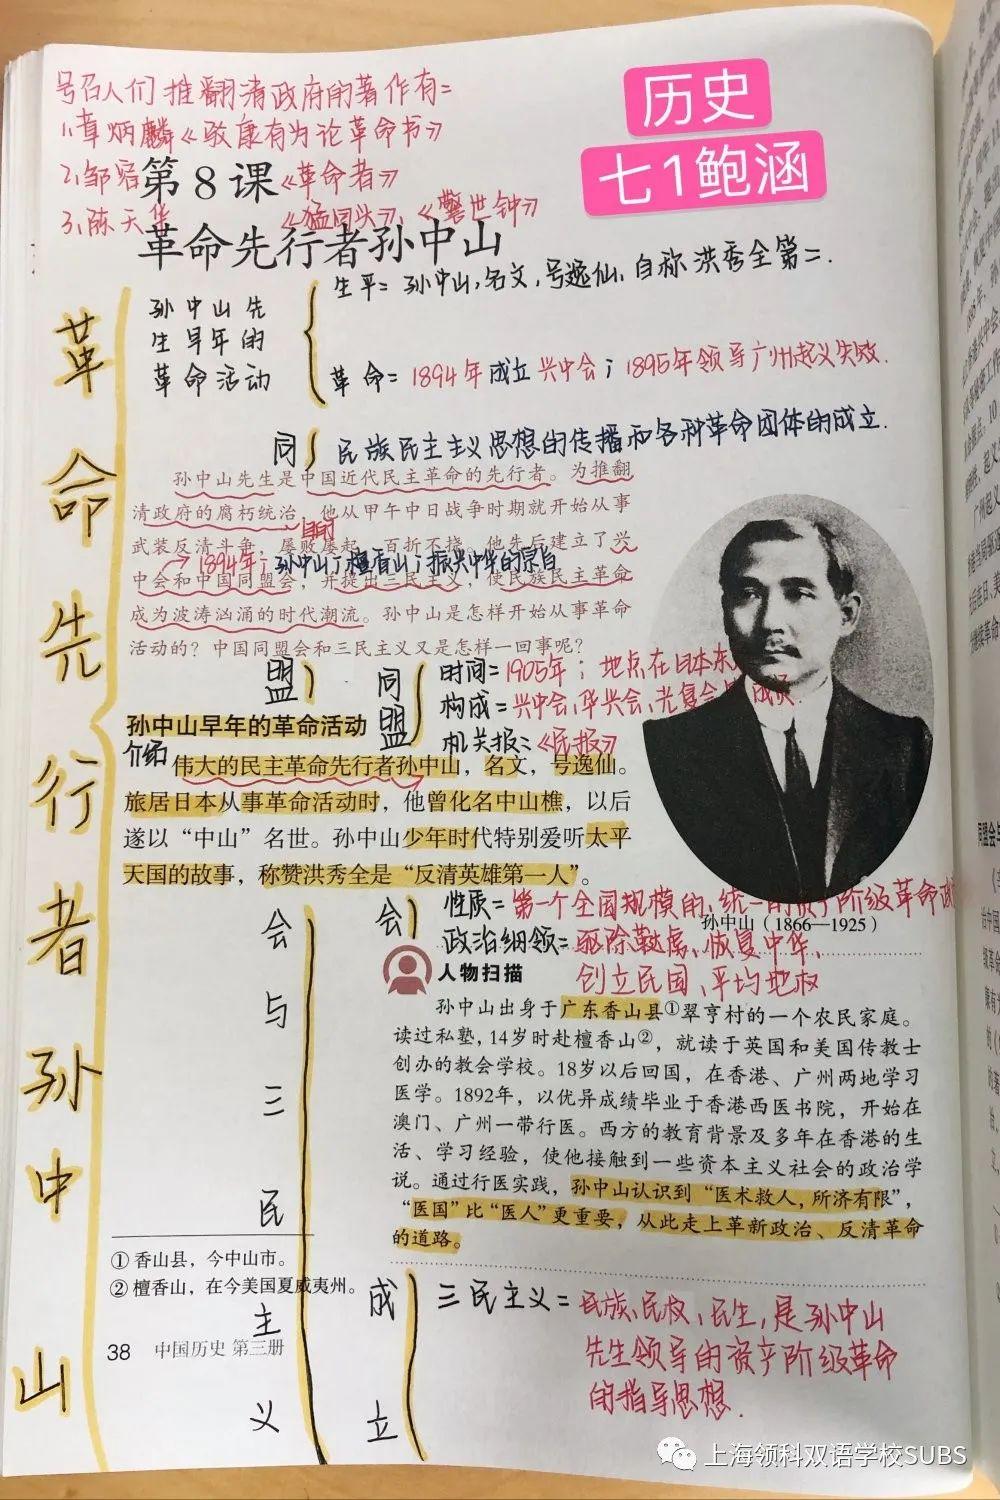 号召人们推翻清政府的著作有=
1.章炳麟《驳康有为论革命书》
2.邹容《革命者》
3.陈天华《猛回头》、《警世钟》
历史
七1鲍涵
第8课
革命先行者孙中山
革命先行者孙中山
孙中山先
生早年的
革命活动
生平=孙中山,名文,号逸仙、自称洪秀全第二.
革命=1894年成立兴中会；1895年领导广州起义失败.
民族民主主义思想的传播和各种革命团体的成立.
孙中山先生是中国近代民主革命的先行者。为推翻
清政府的腐朽统治，他从甲午中日战争时期就开始从事
武装反清斗争，屡败屡起，百折不挠。他先后建立了兴
中会和中国同盟会，并提出三民主义，使民族民主革命
成为波涛汹涌的时代潮流。孙中山是怎样开始从事革命
活动的？中国同盟会和三民主义又是怎样一回事呢？
1894年；孙中山；檀香山；振兴中华的
目的
同盟会与三民主义
同盟会成立
时间=1905年；地点在日本东
构成=兴中会,华兴会,光复会
机关报=《民报》
孙中山早年的革命活动
介绍
伟大的民主革命先行者孙中山，名文，号逸仙。
旅居日本从事革命活动时，他曾化名中山樵，以后
遂以“中山”名世。孙中山少年时代特别爱听太平
天国的故事，称赞洪秀全是“反清英雄第一人”。
孙中山（1866—1925）
性质=第一个全国规模的、统一的资产阶级革命政
政治纲领=驱除鞑虏、恢复中华、
创立民国、平均地权
人物扫描
孙中山出身于广东香山县①翠亨村的一个农民家庭。
读过私塾，14岁时赴檀香山②，就读于英国和美国传教士
创办的教会学校。18岁以后回国，在香港、广州两地学习
医学。1892年，以优异成绩毕业于香港西医书院，开始在
澳门、广州一带行医。西方的教育背景及多年在香港的生
活、学习经验，使他接触到一些资本主义社会的政治学
说。通过行医实践，孙中山认识到“医术救人，所济有限”，
“医国”比“医人”更重要，从此走上革新政治、反清革命
的道路。
三民主义=民族、民权、民生,是孙中山
先生领导的资产阶级革命
的指导思想.
①香山县，今中山市。
②檀香山，在今美国夏威夷州。
38 中国历史 第三册
上海领科双语学校SUBS